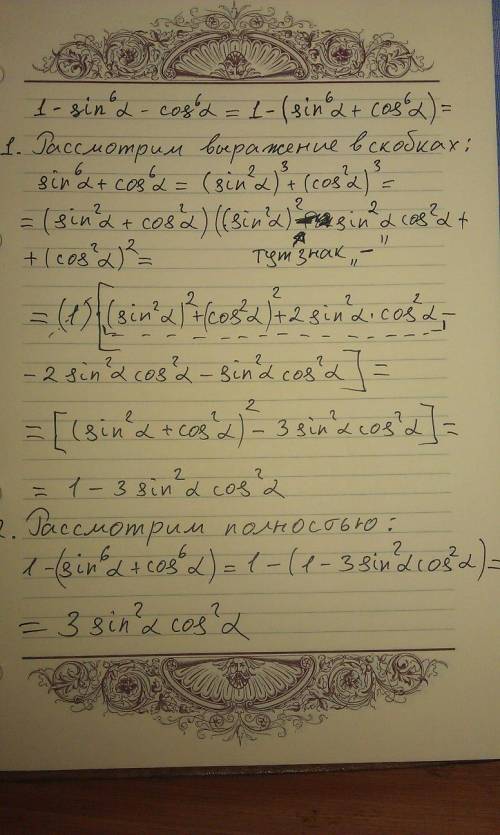 1 - sin⁶α - cos⁶α = 1 - (sin⁶α + cos⁶α) =
1. Рассмотрим выражение в скобках:
sin⁶α + cos⁶α = (sin²α)³ + (cos²α)³ =
= (sin²α + cos²α) ((sin²α)² - sin²α cos²α +
+ (cos²α)² = тут знак „-"
= (1) · [(sin²α)² + (cos²α)² + 2 sin²α · cos²α -
- 2 sin²α cos²α - sin²α cos²α] =
= [(sin²α + cos²α)² - 3 sin²α cos²α] =
= 1 - 3 sin²α cos²α
2. Рассмотрим полностью:
1 - (sin⁶α + cos⁶α) = 1 - (1 - 3 sin²α cos²α) =
= 3 sin²α cos²α